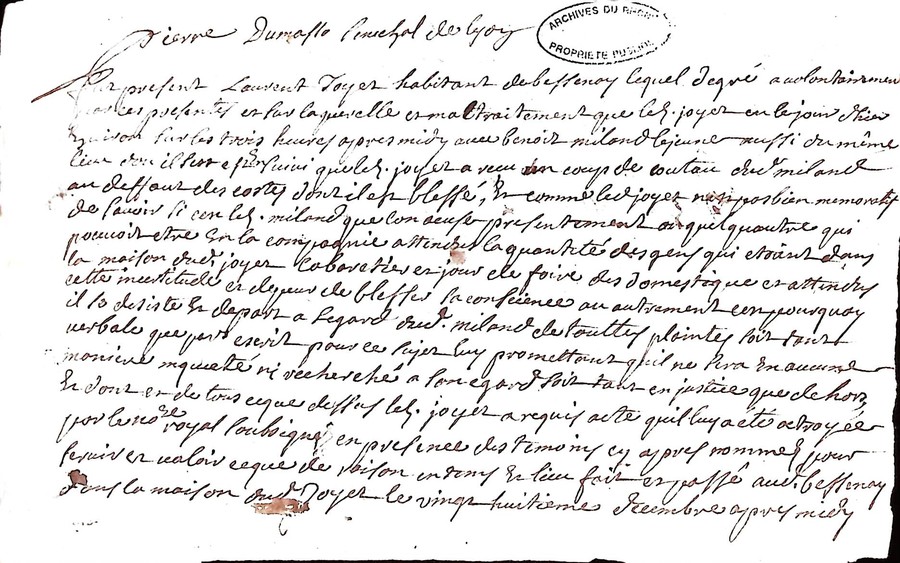 ARCHIVES DU RHONE
PROPRIETE PUBLIQUE
Pierre Dumas senechal de lyon
Fut present Laurent Joyet habitant de bessenay lequel de gré a volontairemen
par ces presentes et sur la querelle et maltraitement que led. joyet eu le jour d'hier
environ sur les trois heures apres midy avec benoit miland lejeune aussi du même
lieu dou il s'en est suivi que led. joyet a receu un coup de coutau dud. miland
au deffaut des costes dont il est blessé, Et comme led joyet n'est pas bien memoratif
de savoir si cest led. miland que l'on accuse presentement ou quelquautre qui
pouvoit etre En la compagnie attendu la quantité des gens qui etoient dans
la maison dud. joyet Cabaretier et jour de foire des domestique et attendu
cette incertitude et de peur de blesser sa conscience au autrement cest pourquoy
il se desiste Et depart a legard dud. miland de touttes plaintes soit tant
verbale que par escrit pour ce sujet luy promettant qu'il ne sera En aucune
maniere inquieté ni recherché a son egard soit tant en justice que de hors
Et dont et de tous ce que dessus led. joyet a requis acte qu'il luy a eté octroyée
par le no.re royal soubsigné en presence des temoins cy apres nommes pour
servir et valoir ce que de raison en tems Et lieu fait et passé aud. bessenay
dans la maison dud. Joyet le vingt huitieme decembre apres midy